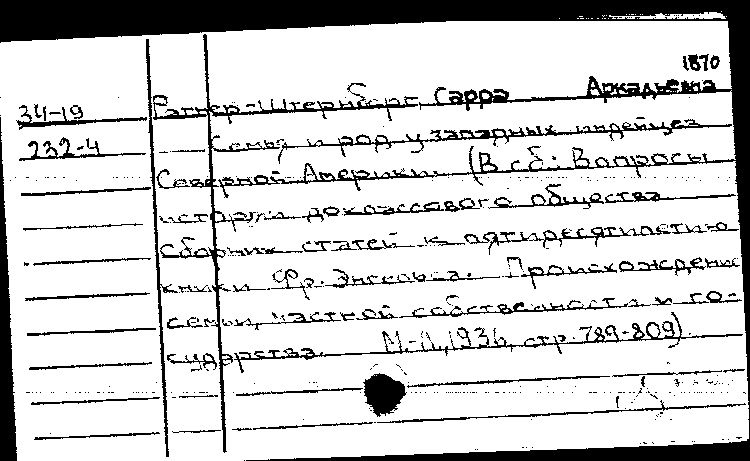 1870
34-19 Ратнер-Штернберг, Сарра Аркадьевна
232-4 Семья и род у западных индейцев
Северной Америки. (В сб.: Вопросы
истории доклассового общества
сборник статей к пятидесятилетию
книги Фр. Энгельса. Происхождение
семьи, частной собственности и го-
сударства. М.-Л., 1936, стр. 789-809).